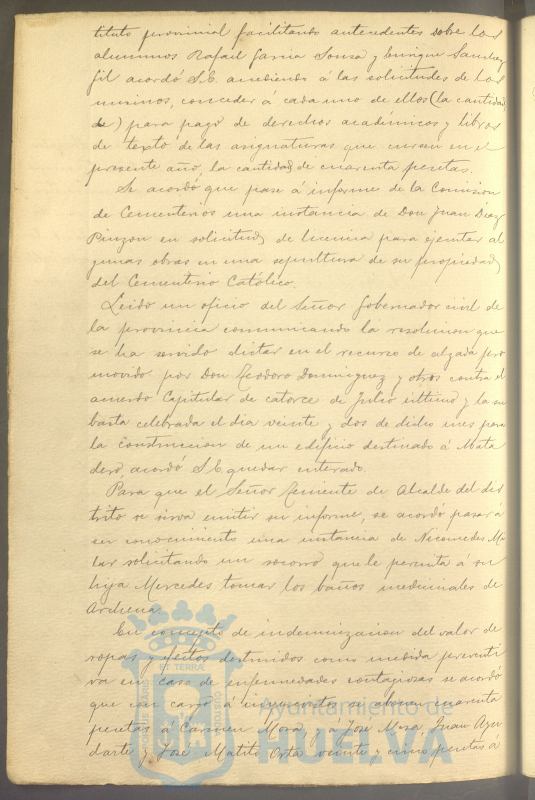 tituto provincial facilitando antecedentes sobre los
alumnos Rafael Garcia Sousa y Enrique Sanchez
Gil acordó S.E. accediendo á las solicitudes de los
mismos, conceder á cada uno de ellos (la cantidad
de) para pago de derechos académicos y libros
de texto de las asignaturas que cursen en el
presente año, la cantidad de cuarenta pesetas.
Se acordó que pase á informe de la Comision
de Cementerios una instancia de Don Juan Diaz
Pinzon en solicitud de licencia para ejecutar al
gunas obras en una sepultura de su propiedad
del Cementerio Católico.
Leido un oficio del Señor Gobernador civil de
la provincia comunicando la resolucion que
se ha servido dictar en el recurso de alzada pro
movido por Don Teodoro Dominguez y otros contra el
acuerdo Capitular de catorce de Julio ultimo y la su
basta celebrada el dia veinte y dos de dicho mes para
la construccion de un edificio destinado á Mata
dero, acordó S.E. quedar enterado.
Para que el Señor Teniente de Alcalde del dis
trito se sirva emitir su informe, se acordó pasar á
su conocimiento una instancia de Nicomedes
solicitando un socorro que le permita á su
hija Mercedes tomar los baños medicinales de
Archena.
En concepto de indemnizacion del valor de
ropas y efectos destruidos como medida preventi
va en caso de enfermedades contagiosas se acordó
que con cargo á imprevistos se abone cuarenta
pesetas á Carmen Mora, y á José Mesa, Juan Azu
darte y José Matito Orta veinte y cinco pesetas á
Ayuntamiento de
HUELVA